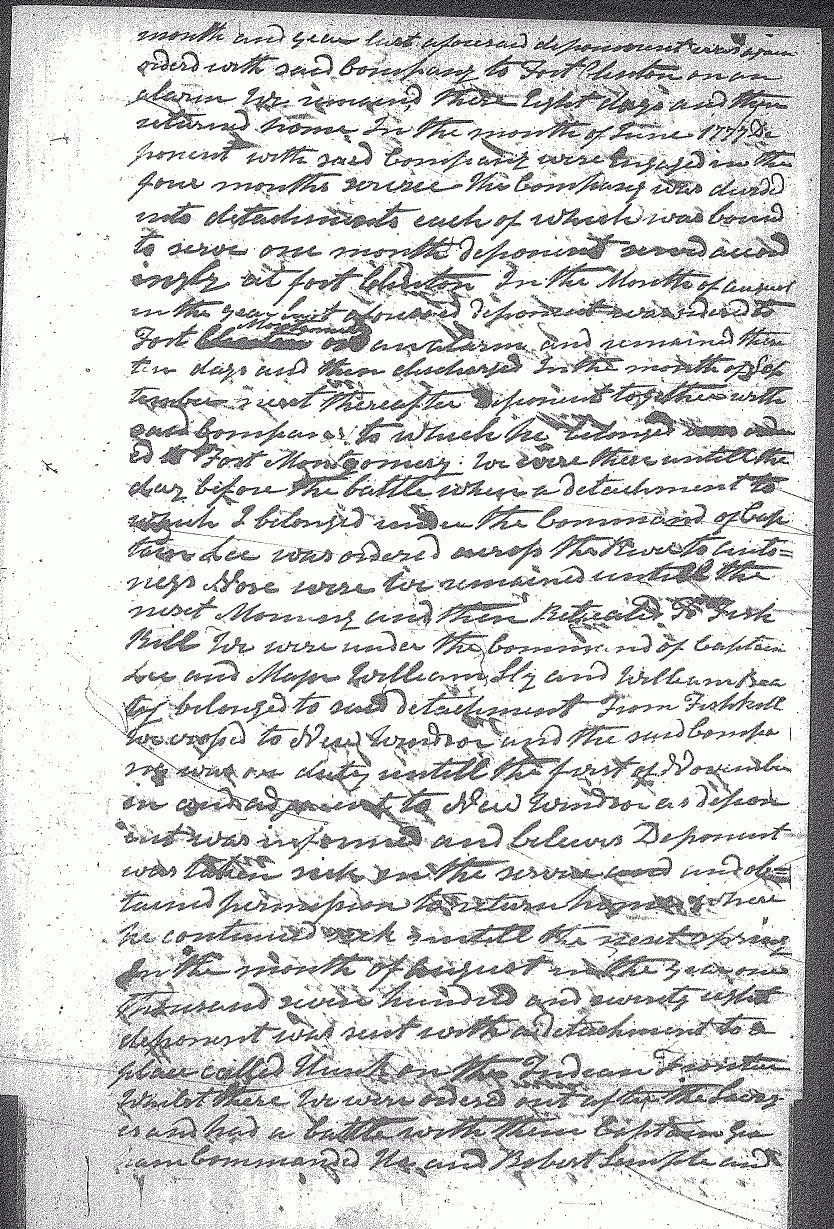 month and year last aforesaid deponent was again
ordered with said Company to Fort Clinton on an
alarm We remained there Eight days and then
returned home In the month of June 1777 De
ponent with said Company were Engaged in the
four months service the Company was divided
into detachments each of which was bound
to serve one month deponent served accord
ingly at fort Clinton In the Month of august
in the year last aforesaid deponent was ordered to
Fort Montgomery on an alarm and remained there
ten days and then discharged In the month of Sep
tember next thereafter deponent together with
said Company to which he belonged was order
ed to Fort Montgomery. We were there untill the
day before the battle when a detachment to
which I belonged under the Command of Cap
tain Lee was ordered across the River to Anto=
neys Nose were we remained untill the
next Morning and then Retreated To Fish
Kill We were under the Command of Captain
Lee and Major William Sly and William Bea
ty belonged to said detachment From Fishkill
We crossed to New Windsor and the said Compa
ny was on duty untill the first of November
in and adjacent to New Windsor as depon
ent was informed and believes Deponent
was taken sick in the service and and ob=
tained permission to return home where
he continued sick untill the next spring
In the month of August in the year one
Thousand seven hundred and seventy eight
deponent was sent with a detachment to a
place called Hunk on the Indean Frontier
Whilst there We were ordered out after the Savag
es and had a battle with them Captain
Commanded Us and Robert Semple and